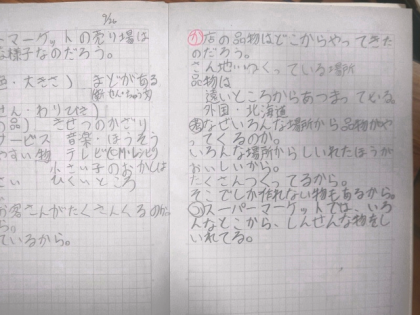 9/26
マーケットの売り場は
様子なのだろう。
・大きさ） まどがある
せん・わりびき）
品） きせつのかざり
サービス 音楽 ほうそう
やすい物 テレビ
小さい子のおかしは
ひくいところ
お客さんがたくさんくるのか。
から。
ているから。
店の品物はどこからやってきた
のだろう。
さん地…なくっている場所
品物は
遠いところからあつまっている。
外国 北海道
なぜいろんな場所から品物がや
ってくるのか。
いろんな場所からしいれたほうが
おいしいから。
たくさんつくってるから。
そこでしか作れない物もあるから。
スーパーマーケットでは、いろ
んなとこから、しんせんな物をし
いれてる。